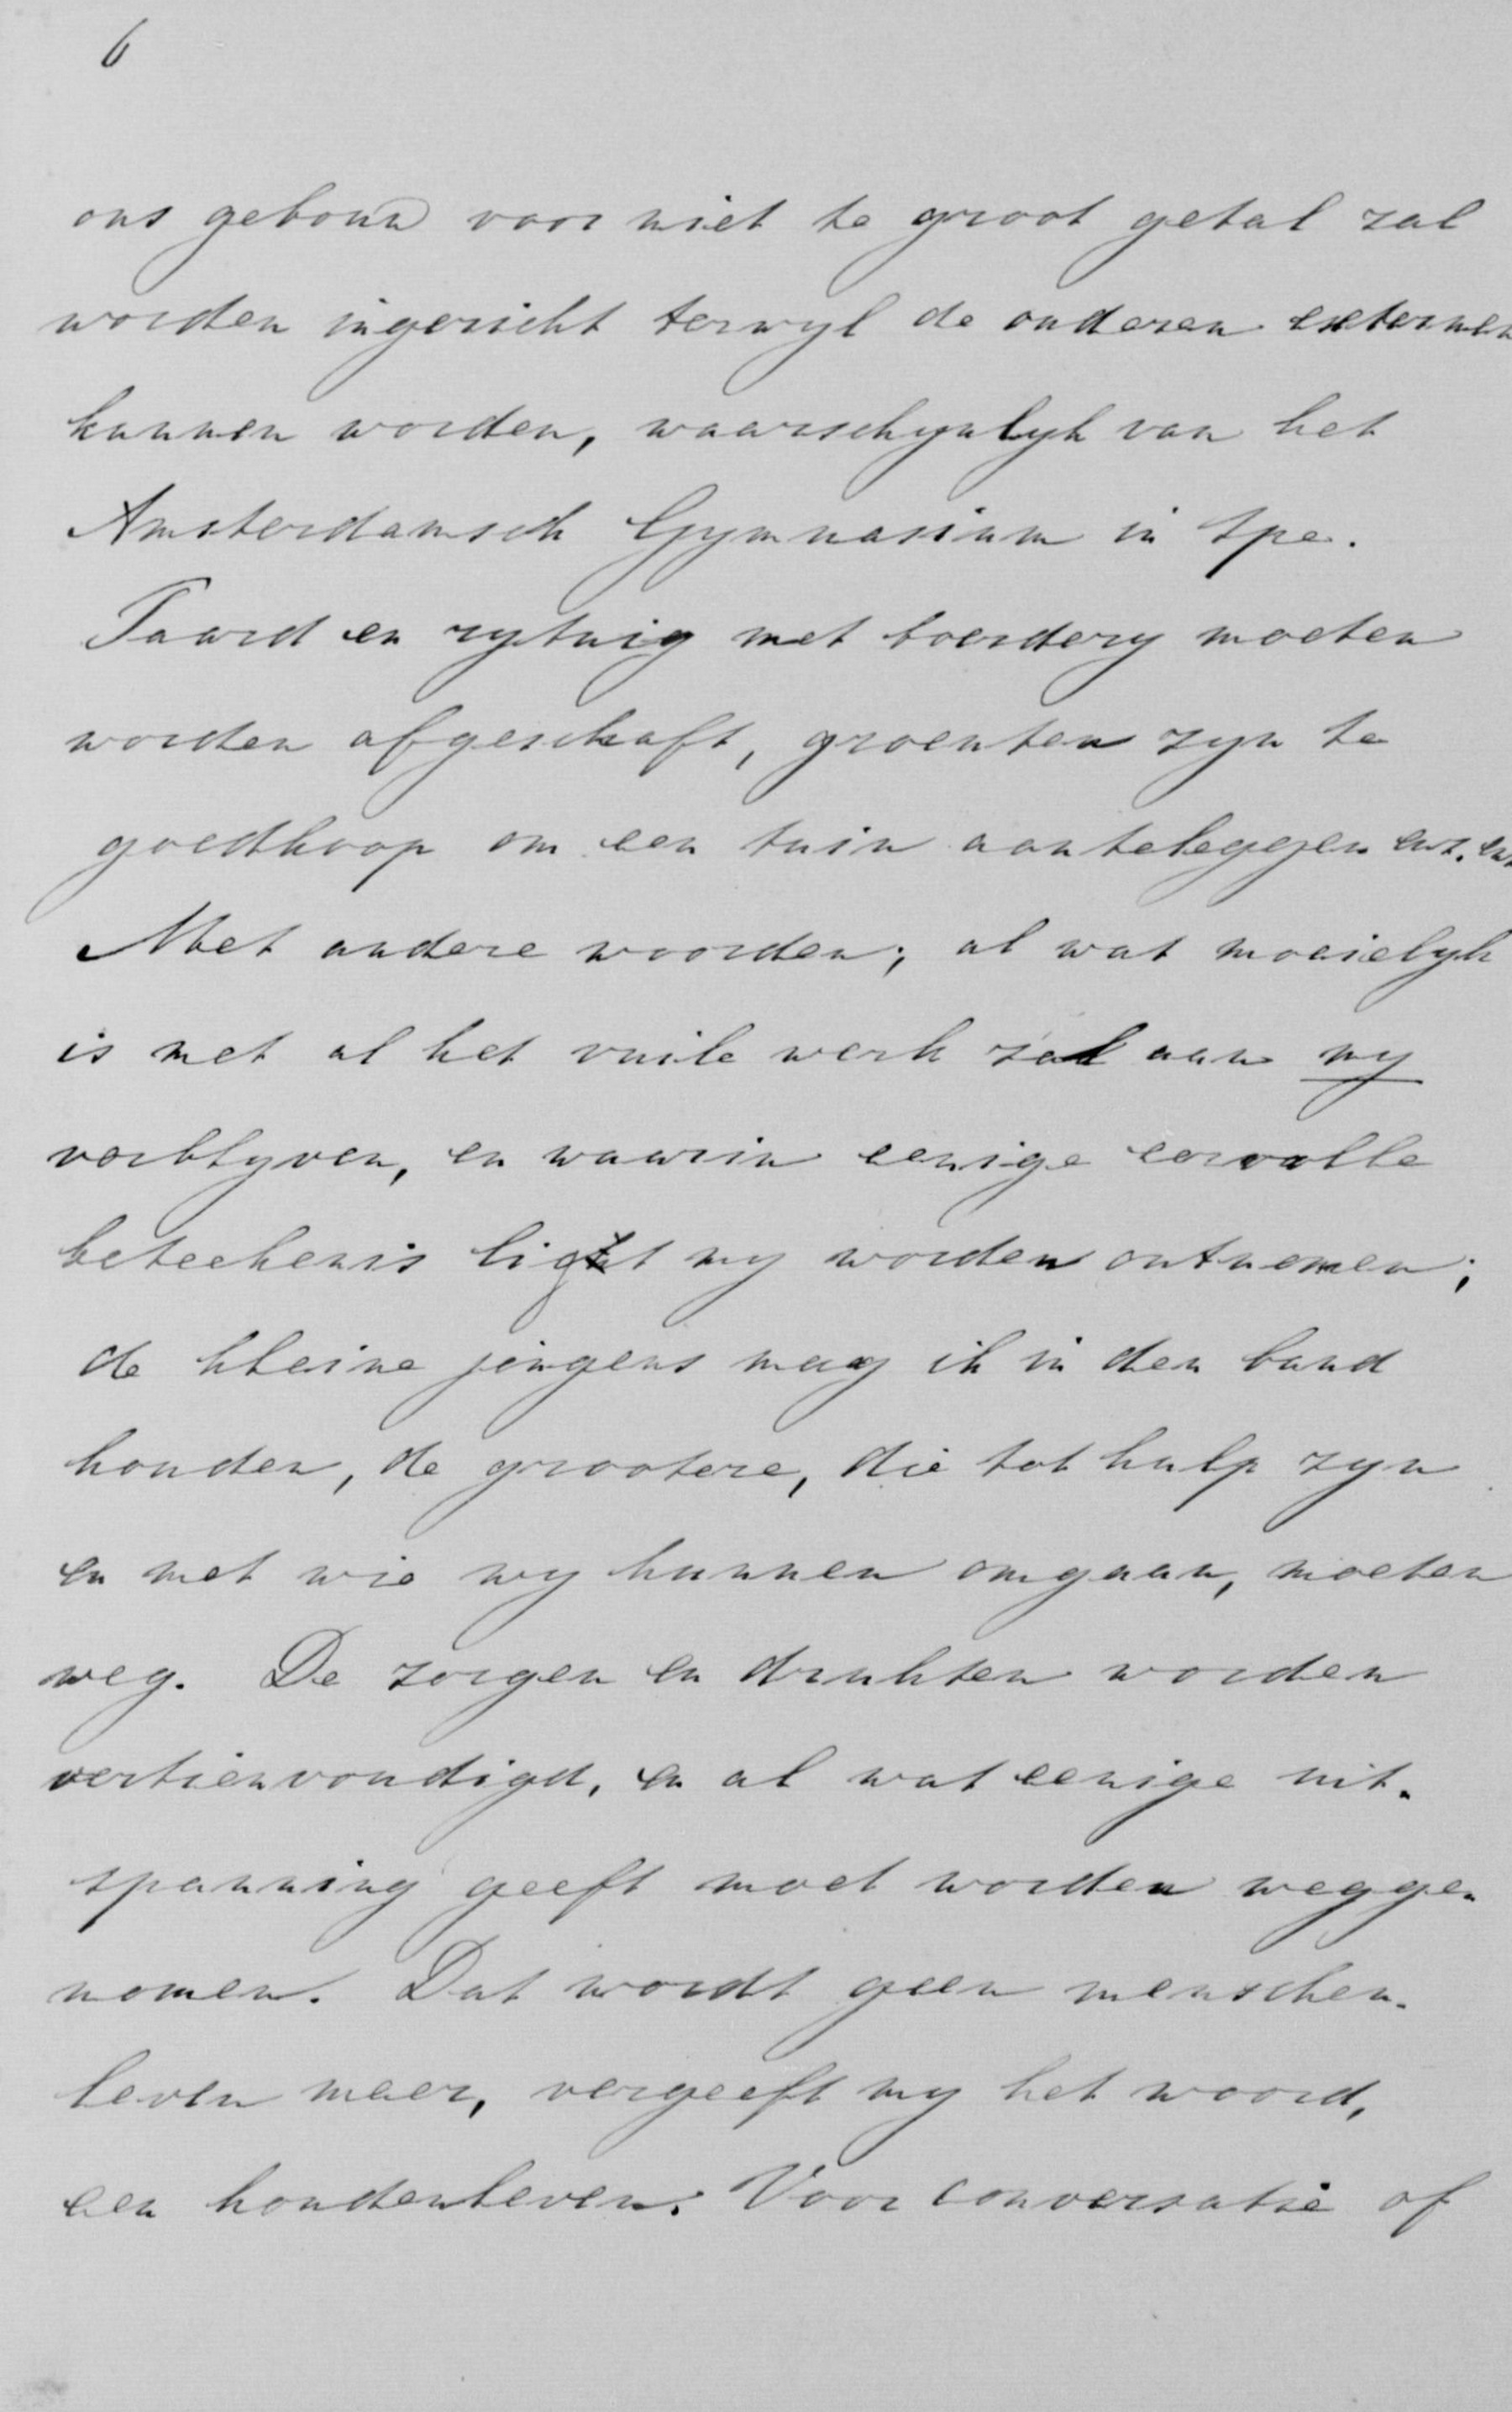 6
ons gebouw voor niet te groot getal zal
worden ingericht terwyl de anderen externen
kunnen worden, waarschynlyk van het
Amsterdamsch Gymnasium in spe.
Paard en rytuig met boerdery moeten
worden afgeschaft, groenten zyn te
goedkoop om een tuin aantelegggen enz. enz
Met andere woorden; al wat moeielyk
is met al het vuile werk zal aan my
verblyven, en waarin eenige eervolle
beteekenis ligt my worden ontnemen;
de kleine jongens mag ik in den band
houden, de grootere, die tot hulp zyn
en met wie wy kunnen omgaan, moeten
weg. De zorgen en drukten worden
vertienvoudigd, en al wat eenige uit-
spanning geeft moet worden wegge-
nomen. Dat wordt geen menschen-
leven meer, vergeeft my het woord,
een hondenleven. Voor conversatie of